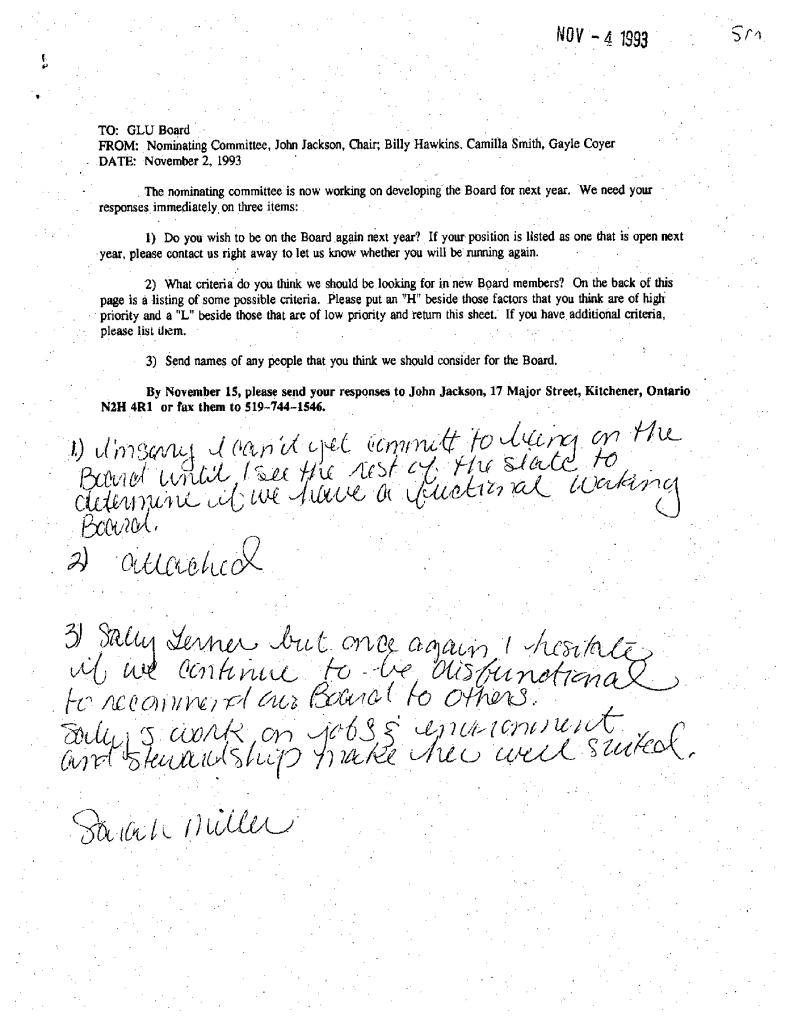 NOV - 4 1993
SM
TO: GLU Board
FROM: Nominating Committee, John Jackson, Chair; Billy Hawkins, Camilla Smith, Gayle Coyer
DATE: November 2, 1993
The nominating committee is now working on developing the Board for next year. We need your
responses immediately on three items:
1) Do you wish to be on the Board again next year? If your position is listed as one that is open next
year, please contact us right away to let us know whether you will be running again.
2) What criteria do you think we should be looking for in new Board members? On the back of this
page is a listing of some possible criteria. Please put an "H" beside those factors that you think are of high
priority and a "L" beside those that are of low priority and return this sheet. If you have additional criteria,
please list them.
3) Send names of any people that you think we should consider for the Board.
By November 15, please send your responses to John Jackson, 17 Major Street, Kitchener, Ontario
N2H 4R1 or fax them to 519-744-1546.
1) I'm sorry I can't yet committ to being on the
Board until I see the rest of the slate to
determine if we have a fuctional working
Board.
2) attached
3) Sally Lerner but once again I hesitate
if we continue to be disfunctional
to recommend our Board to others.
Sally's work on jobs & environment
and stewardship make her well suited.
Sarah Miller